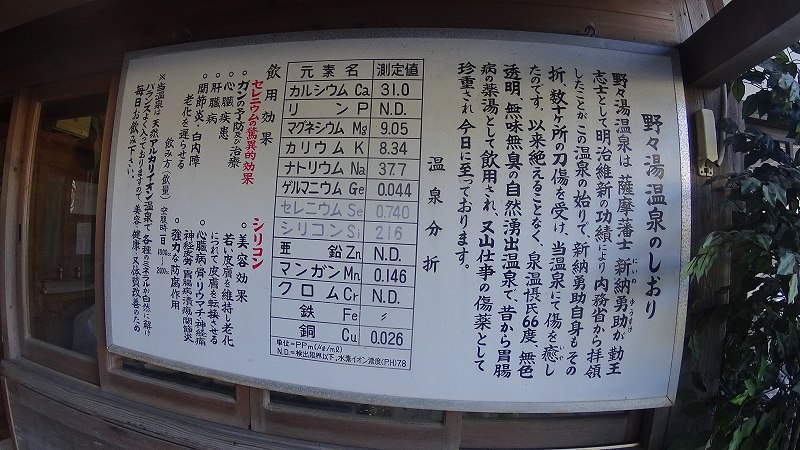 野々湯温泉のしおり
野々湯温泉は 薩摩藩士 新納勇助が 勤王
志士として明治維新の功績により内務省から拝領
したことがこの温泉の始りで、新納勇助自身もその
折、数十ヶ所の刀傷を受け、当温泉にて傷を癒し
たのです。以来絶えることなく、泉温摂氏66度、無色
透明、無味無臭の自然湧出温泉で、昔から胃腸
病の薬湯として飲用され、又山仕事の傷薬として
珍重され今日に至っております。
温泉分析
元素名 測定値
カルシウム Ca 31.0
リン P N.D.
マグネシウム Mg 9.05
カリウム K 8.34
ナトリウム Na 37.7
ゲルマニウム Ge 0.044
セレニウム Se 0.740
シリコン Si 216
亜鉛 Zn N.D.
マンガン Mn 0.146
クロム Cr N.D.
鉄 Fe 〃
銅 Cu 0.026
単位=PPm(㎍/ml)
N.D.=検出限界以下、水素イオン濃度(PH)7.8
飲用効果
セレニウムの驚異的効果
・ガンの予防及治療
・心臓疾患
・肝臓病
・関節炎、白内障
老化を遅らせる
シリコン
・美容効果
若い皮膚を維持し老化
につれて皮膚を転換させる
・心臓病 骨 リウマチ 神経病
神経疲労 胃腸病 潰瘍 関節炎
・強力な防腐作用
飲み方(飲量)
空腹時 一日
※当温泉は 天然アルカリイオン温泉で 各種のミネラルが自然に解け
バランスよく入っておりますので 美容 健康 又体質改善のため
毎日お飲み下さい。